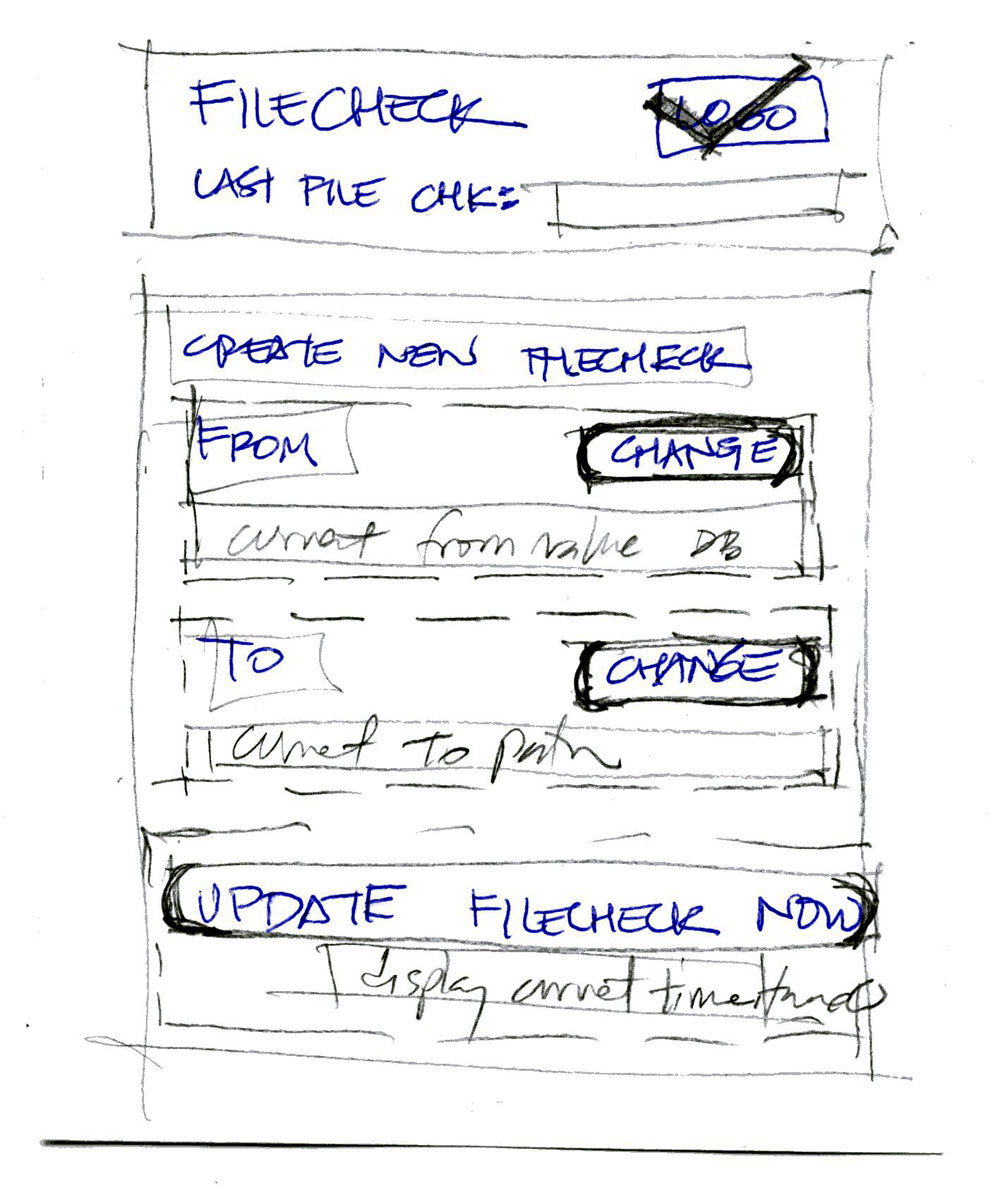 FILECHECK LOGO
LAST FILE CHK:
CREATE NEW FILECHECK
FROM CHANGE
current from value DB
TO CHANGE
current to path
UPDATE FILECHECK NOW
display current timestamp